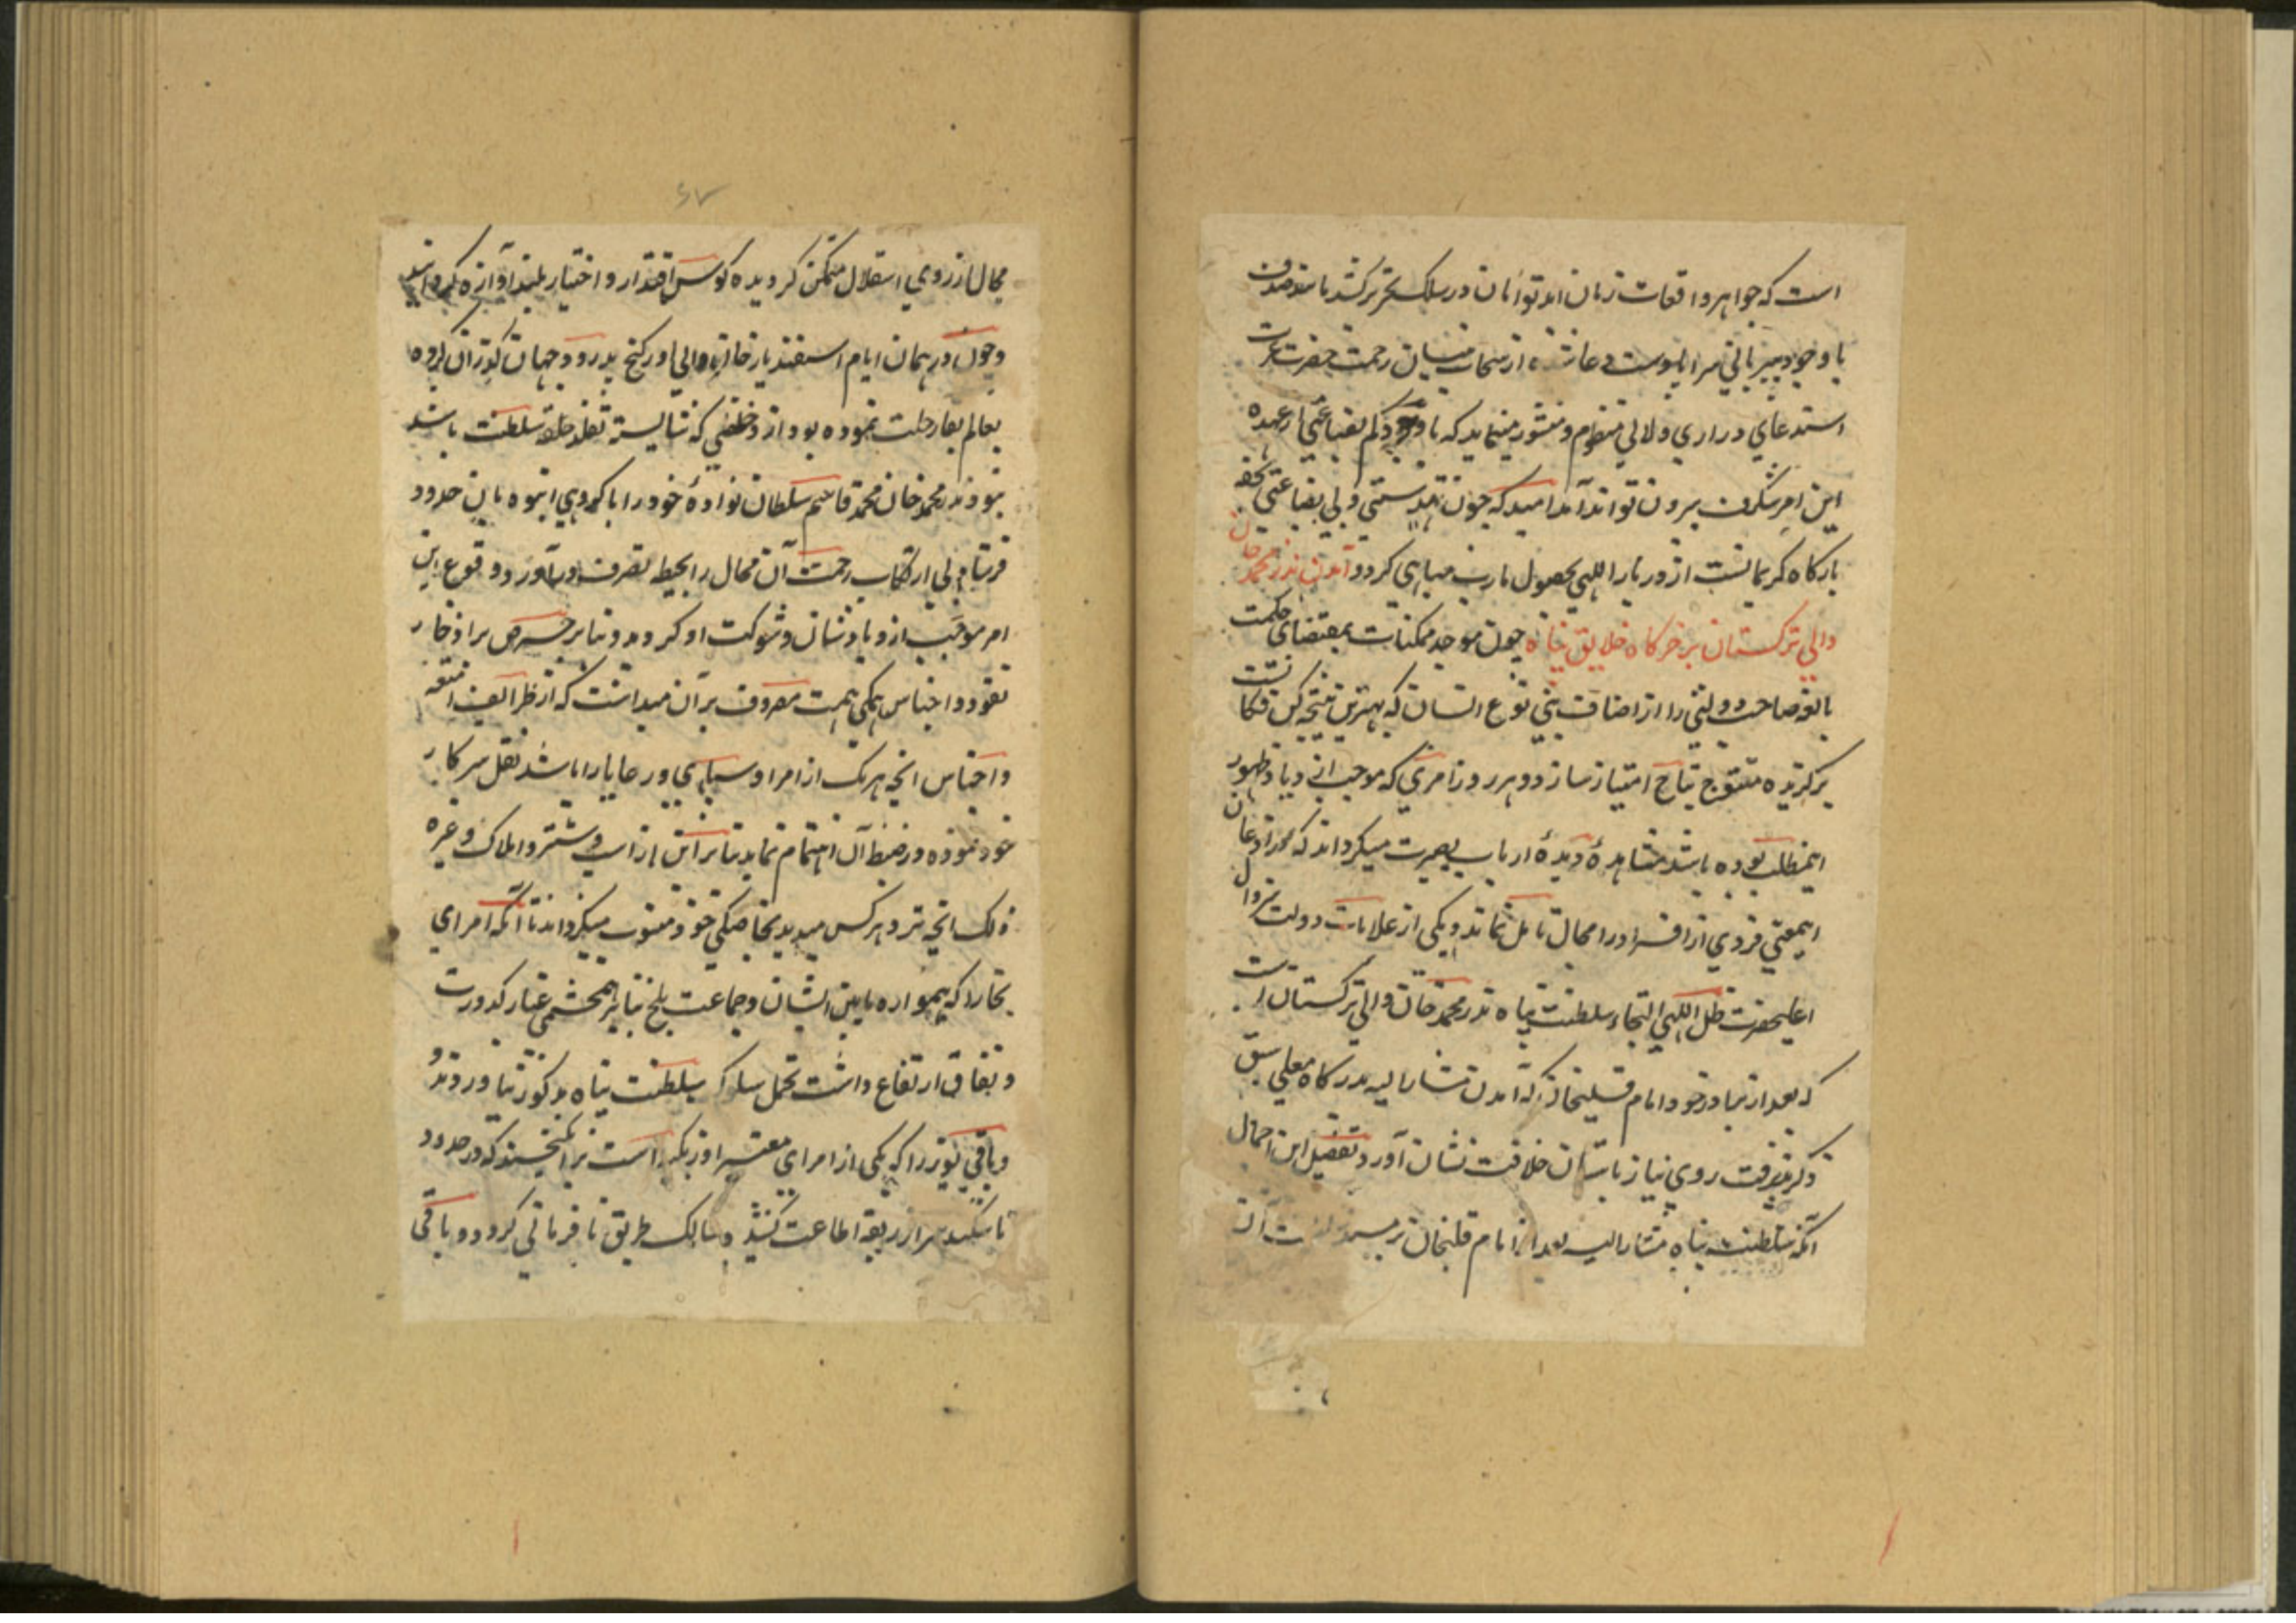 است که جواهر واقعات زمان ابد توأمان در سلک تحریر کشد باید صدف
با وجود میزبانی سراپا پوست دعا از سحاب نیسان رحمت حضرت عزت
استدعای دراری و لآلی منظوم و منثور مینماید که با وجود کم بضاعتی از عهده
این امر شگرف بیرون تواند آمد امید که چون تهیدستی و بی بضاعتی تحفه
بارگاه کریمانست از دربار الهی بحصول مارب مباهی گردد آمدن ندر محمد خان
والی ترکستان بدرگاه خلایق پناه چون موجد ممکنات بمقتضای حکمت
بالغه صاحب دولتی را از اصناف بنی نوع انسان که بهترین نتیجه کن فکانست
برگزیده متتوج بتاج امتیاز سازد و هر روز امری که موجب ازدیاد ظهور
اینمطلب بوده باشد مشاهدهٔ دیدهٔ ارباب بصیرت میگرداند که در اذعان
اینمعنی فردی از افراد را مجال تامل نماند و یکی از علامات دولت بیزوال
اعلیحضرت ظل اللهی التجاء سلطنت پناه ندر محمد خان والی ترکستان است
که بعد از برادر خود امام قلیخان که آمدن مشارالیه بدرگاه معلی سبق
ذکر پذیرفت روی نیاز باستان خلافت نشان آورد و تفصیل این اجمال
آنکه سلطنت پناه مشارالیه بعد از امام قلیخان بر مسند سلطنت آن
محال از روی استقلال متمکن گردیده کوس اقتدار و اختیار بلند آوازه گردانید
و چون در همان ایام اسفندیار خان والی اورکنج بدرود جهان گذران کرده
بعالم بقا رحلت نموده بود از و خلفی که شایسته تقلد سلطنت باشد
نبود ندر محمد خان محمد قاسم سلطان نوادهٔ خود را با گروهی انبوه بان حدود
فرستاد بی ارتکاب زحمت آن محال را بحیطه تصرف درآورد و وقوع این
امر موجب ازدیاد شان و شوکت او گردید و بنا بر حرص بر ادخار
نقود و اجناس همگی همت مصروف بر آن میداشت که از ظرائف امتعه
و اجناس آنچه هر یک از امرا و سپاهی و رعایا را باشد نقل سرکار
خود نموده در ضبط آن اهتمام نماید بنابراین از اسب و شتر و املاک و غیره
ذلک آنچه نزد هرکس میدید بخاصگی خود منسوب میگرداند تا آنکه امرای
بخارا که همواره مابین ایشان و جماعت بلخ بنا بر همچشمی غبار کدورت
و نفاق ارتفاع داشت تحمل سلوک سلطنت پناه مذکور نیاوردند و
و باقی یوز را که یکی از امرای معتبر اوزبکیه است برانگیختند که در حدود
تاشکند سر از ربقه اطاعت کشیده سالک طریق نافرمانی گردد و باقی